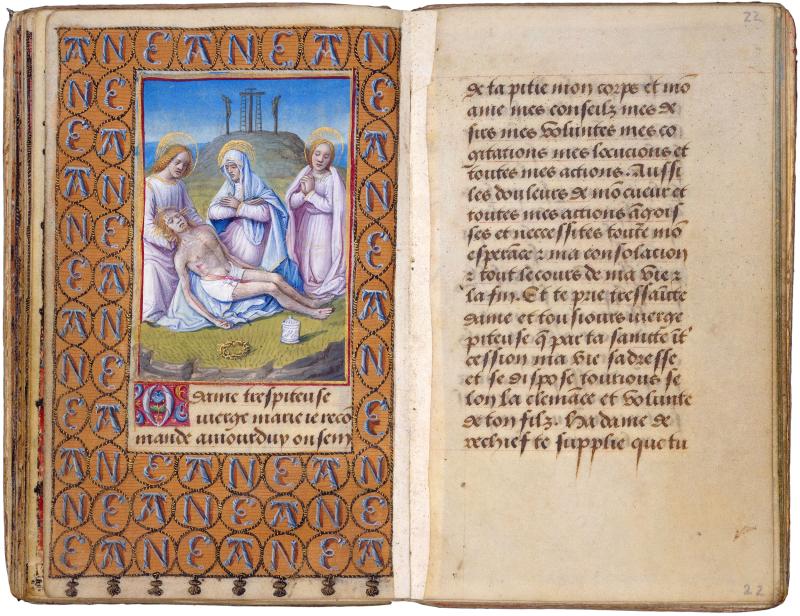 A N E A N E A N
N E E
E A A
A N N
N E E
E A A
A N N
N E E
E A A
O dame trespiteuse
vierge marie ie recō
mande auiourduy ou sein
A N E A N E A N
N E A N E A N E
E A N E A N E A
22
de ta pitie mon corps et mō
ame mes conseilz mes de
sirs mes voluntes mes co
gitations mes locucions et
toutes mes actions. Aussi
les douleurs de mō cueur et
toutes mes actions āgois
ses et necessites toute mō
esperāce ⁊ ma consolation
⁊ tout secours de ma vie ⁊
la fin. Et te prie tressaīcte
dame et tousiours vierge
piteuse q̄ par ta saincte īt
cession ma vie sadresse
et se dispose toutious se
lon la clemāce et volunte
de ton filz. Ha dame de
rechief te supplie que tu
22